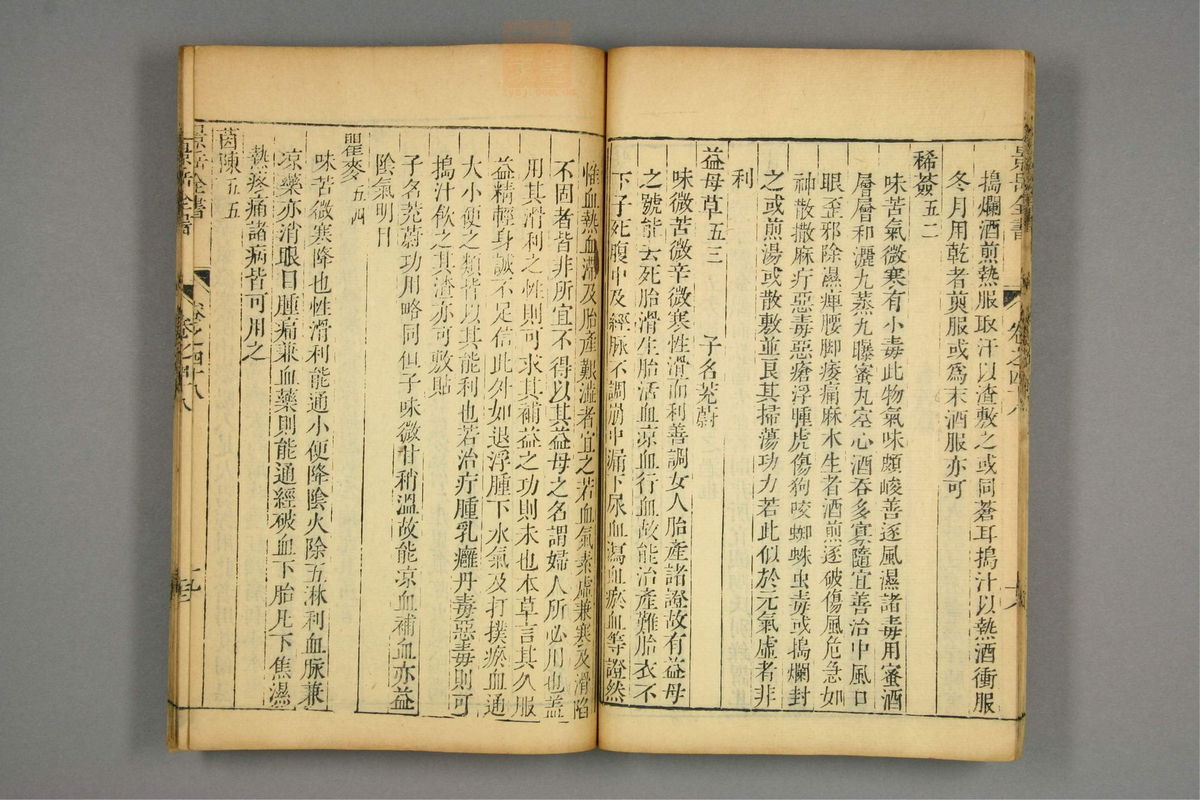 景岳全書
卷之四十八
十八
搗爛酒煎熱服取汗以渣敷之或同蒼耳搗汁以熱酒衝服
冬月用乾者煎服或為末酒服亦可
稀薟五二
味苦氣微寒有小毒此物氣味頗峻善逐風濕諸毒用蜜酒
層層和灑九蒸九曝蜜丸空心酒吞多寡隨宜善治中風口
眼歪邪除濕痺腰脚痠痛麻木生者酒煎逐破傷風危急如
神散撒麻疔惡毒惡瘡浮腫虎傷狗咬蜘蛛虫毒或搗爛封
之或煎湯或散敷並良其掃蕩功力若此似於元氣虛者非
利
益母草五三 子名茺蔚
味微苦微辛微寒性滑而利善調女人胎產諸證故有益母
之號能去死胎滑生胎活血凉血行血故能治產難胎衣不
下子死腹中及經脉不調崩中漏下尿血瀉血瘀血等證然
惟血熱血滯及胎產艱澁者宜之若血氣素虛兼寒及滑陷
不固者皆非所宜不得以其益母之名謂婦人所必用也蓋
用其滑利之性則可求其補益之功則未也本草言其久服
益精輕身誠不足信此外如退浮腫下水氣及打撲瘀血通
大小便之類皆以其能利也若治疔腫乳癰丹毒惡毒則可
搗汁飲之其渣亦可敷貼
子名茺蔚功用略同但子味微甘稍溫故能凉血補血亦益
陰氣明目
瞿麥五四
味苦微寒降也性滑利能通小便降陰火除五淋利血脉兼
凉藥亦消眼目腫痛兼血藥則能通經破血下胎凡下焦濕
熱疼痛諸病皆可用之
茵陳五五
景岳全書
卷之四十八
十九